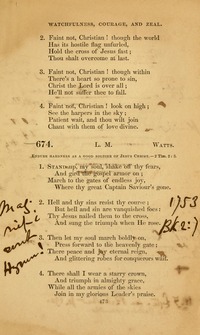 WATCHFULNESS, COURAGE, AND ZEAL.
2. Faint not, Christian! though the world
Has its hostile flag unfurled,
Hold the cross of Jesus fast;
Thou shalt overcome at last.
3. Faint not, Christian! though within
There's a heart so prone to sin,
Christ the Lord is over all;
He'll not suffer thee to fall.
4. Faint not, Christian! look on high;
See the harpers in the sky;
Patient wait, and thou wilt join
Chant with them of love divine.
674. L. M. WATTS.
ENDURE HARDNESS AS A GOOD SOLDIER OF JESUS CHRIST.—2 Tim. 2: 3.
1. STAND up, my soul, shake off thy fears,
And gird the gospel armor on;
March to the gates of endless joy,
Where thy great Captain Saviour's gone.
2. Hell and thy sins resist thy course;
But hell and sin are vanquished foes;
Thy Jesus nailed them to the cross,
And sung the triumph when He rose.
3. Then let my soul march boldly on,
Press forward to the heavenly gate;
There peace and joy eternal reign,
And glittering robes for conquerors wait.
4. There shall I wear a starry crown,
And triumph in almighty grace,
While all the armies of the skies
Join in my glorious Leader's praise.
Hymn!
1753